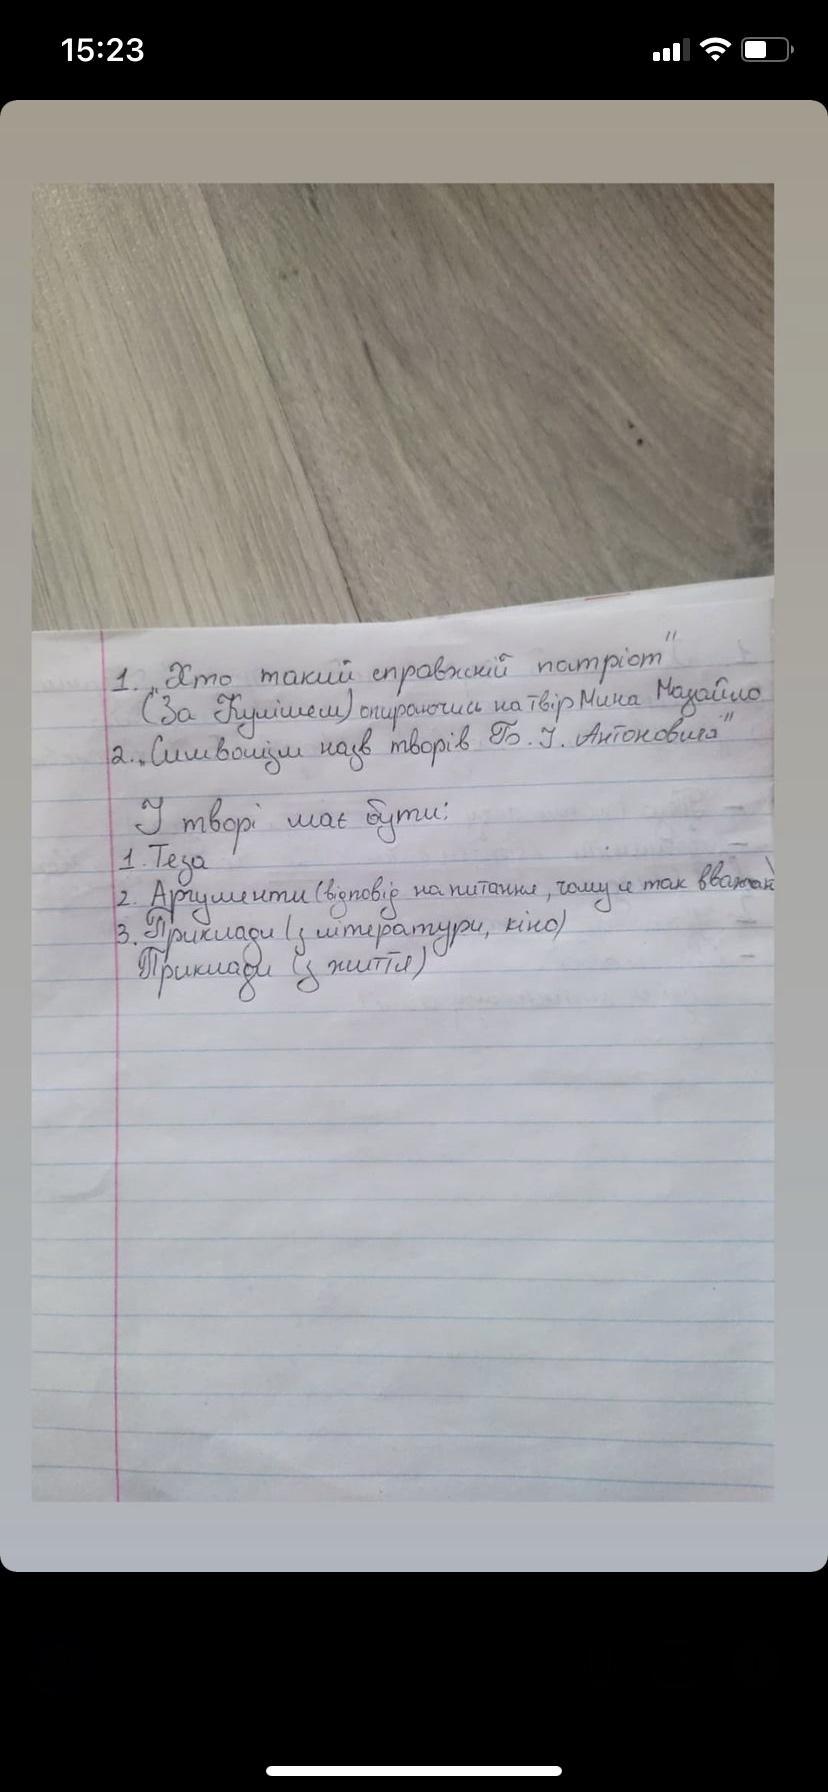 15:23
1. „Хто такий справжній патріот"
(За Кулішем) опираючись на твір Мина Мазайло
2. „Символізм назв творів Б. І. Антоновича"
У творі має бути:
1. Теза
2. Аргументи (відповід на питання, чому я так вважаю)
3. Приклади (з літератури, кіно)
Приклади (з життя)